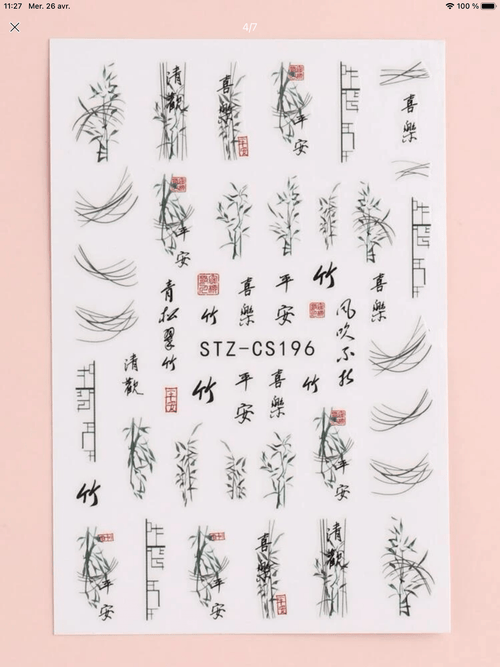 11:27 Mer. 26 avr.
100 %
4/7
清觀
喜樂
平安
喜樂
平安
青松翠竹
竹
喜樂
平安
竹
风吹不折
喜樂
STZ-CS196
清觀
竹
平安
喜樂
竹
平安
竹
平安
平安
喜樂
清觀